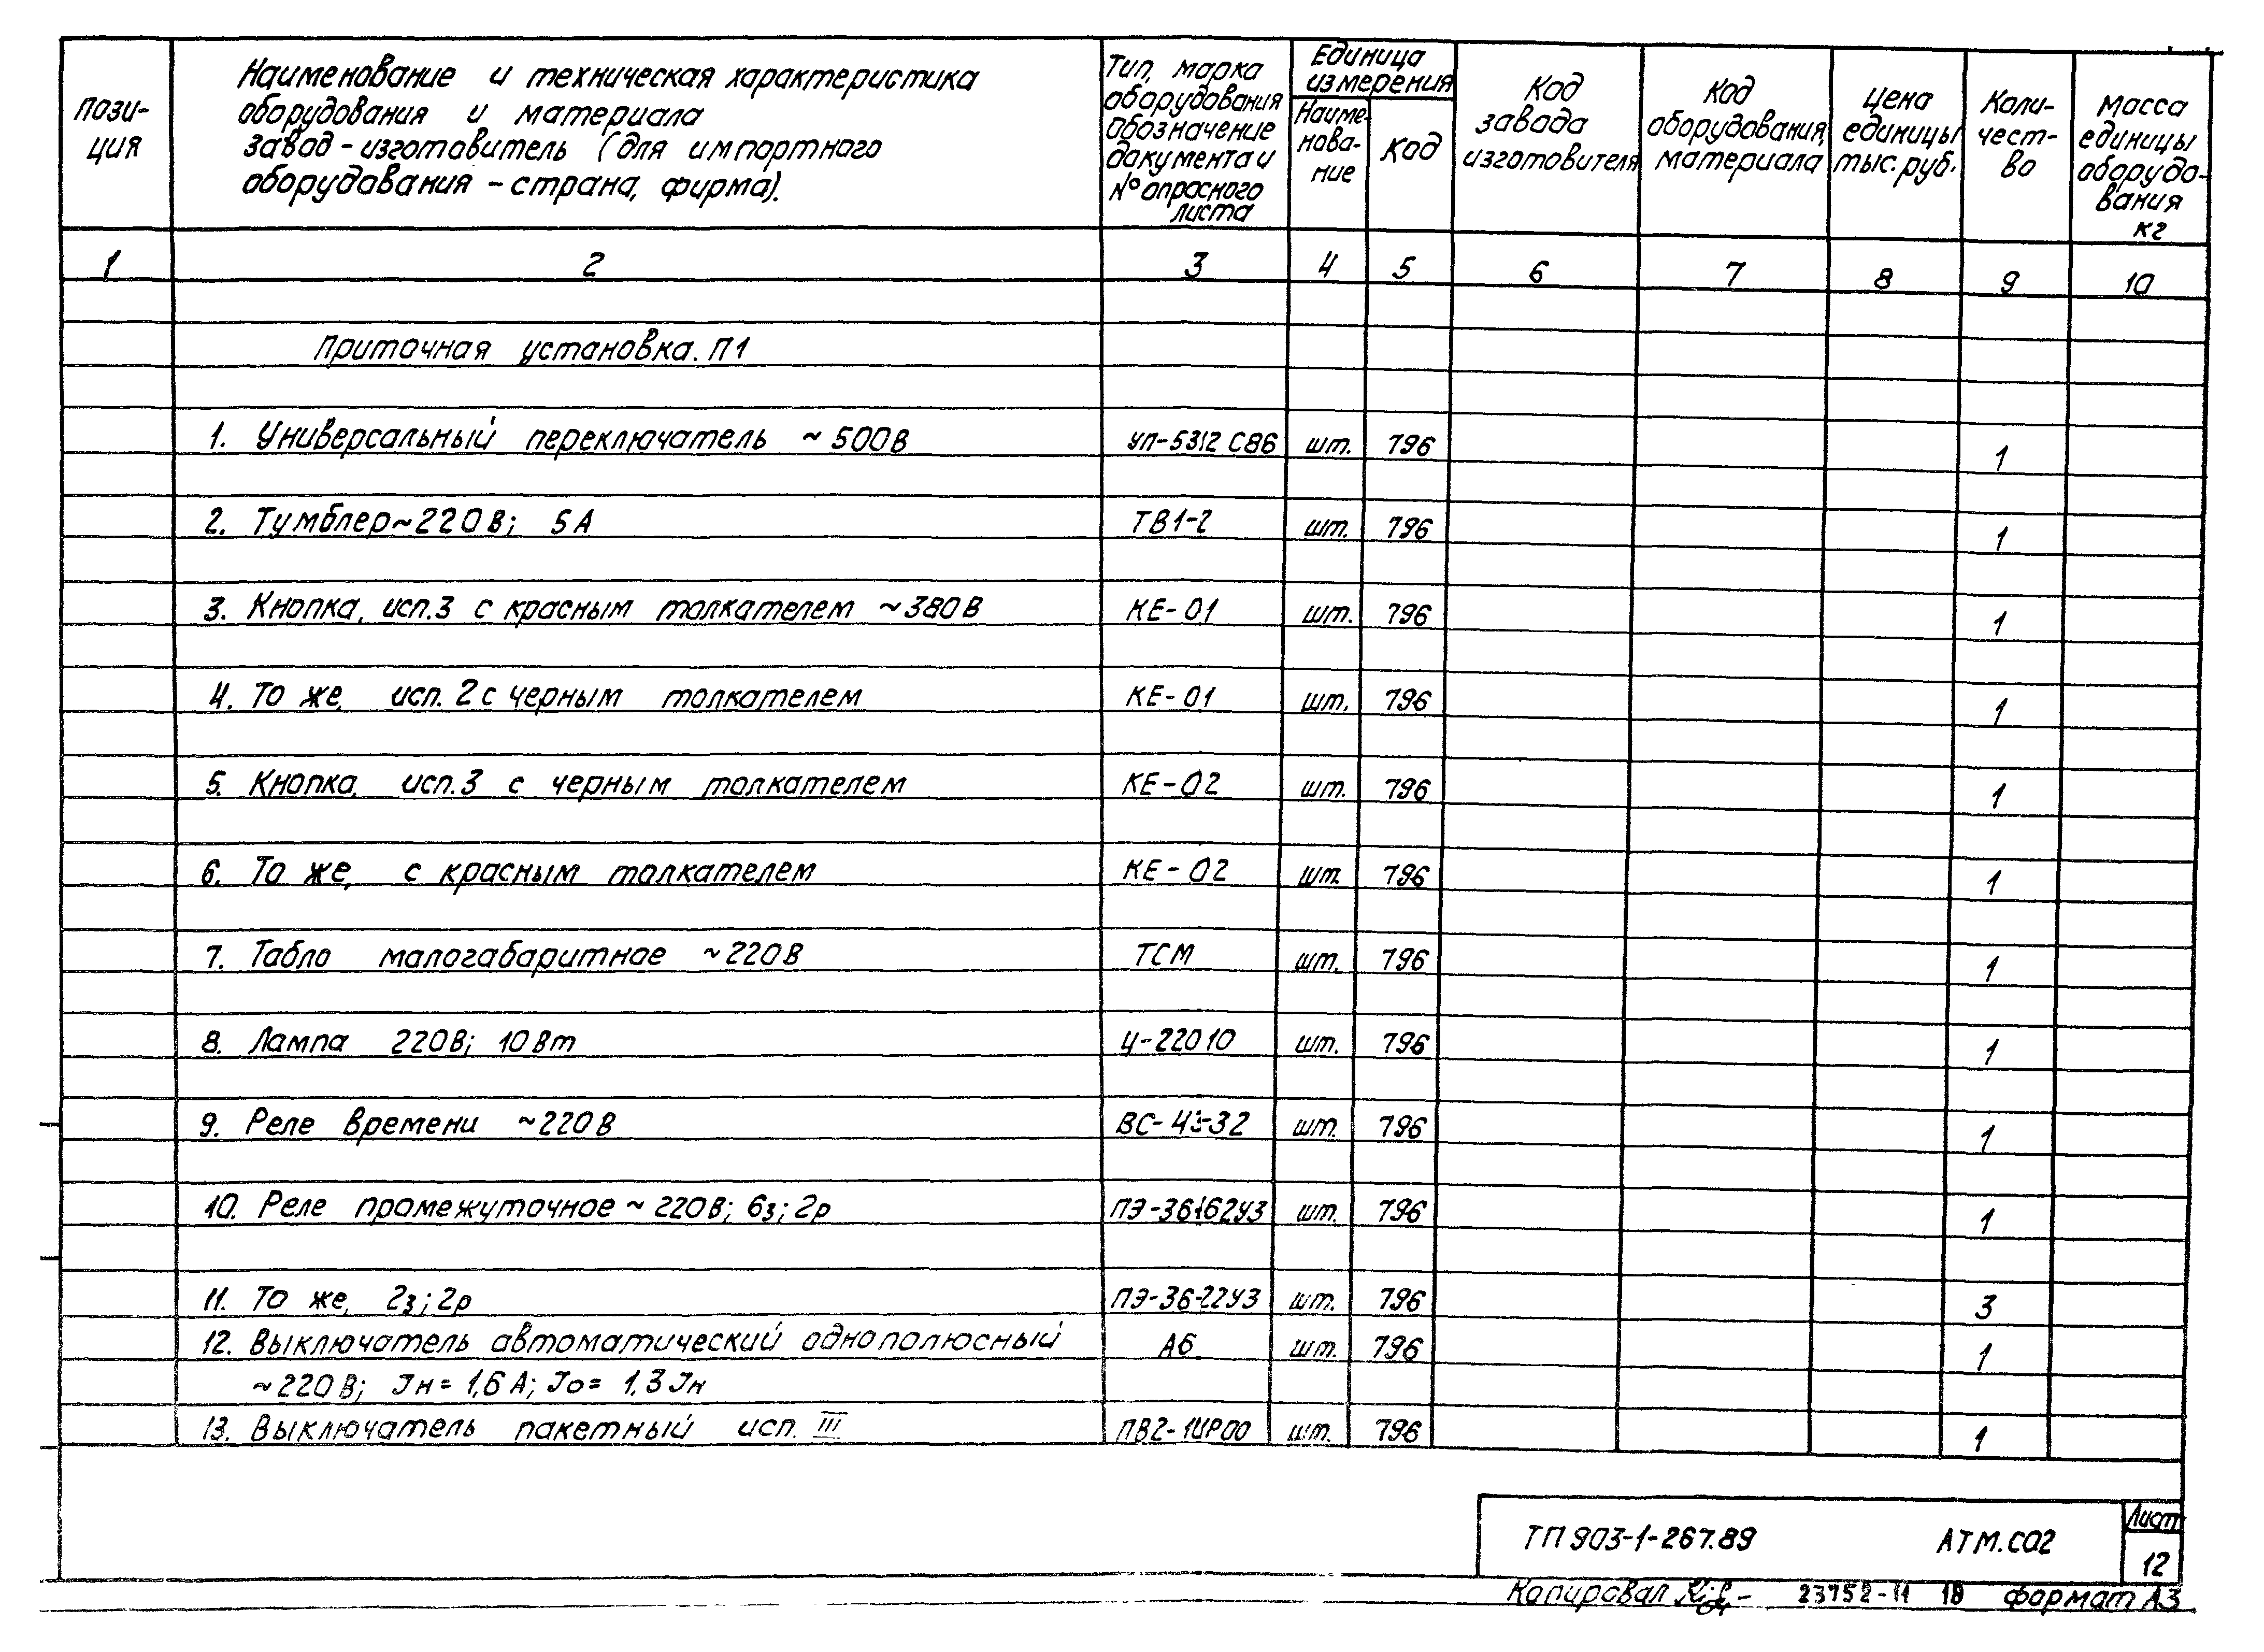 пози-
ция
Наименование и техническая характеристика
оборудования и материала
завод-изготовитель (для импортного
оборудования - страна, фирма).
Тип, марка
оборудования
обозначение
документа и
№ опросного
листа
Единица
измерения
Наиме-
нова-
ние
Код
Код
завода
изготовителя
Код
оборудования,
материала
Цена
единицы
тыс. руб.
Коли-
чест-
во
Масса
единицы
оборудо-
вания
кг
1 2 3 4 5 6 7 8 9 10
Приточная установка. П1
1. Универсальный переключатель ~ 500В УП-5312 С86 шт. 796 1
2. Тумблер ~ 220В; 5А ТВ1-2 шт. 796 1
3. Кнопка, исп.3 с красным толкателем ~380В КЕ-01 шт. 796 1
4. То же, исп. 2 с черным толкателем КЕ-01 шт. 796 1
5. Кнопка, исп.3 с черным толкателем КЕ-02 шт. 796 1
6. То же, с красным толкателем КЕ-02 шт. 796 1
7. Табло малогабаритное ~220В ТСМ шт. 796 1
8. Лампа 220В; 10Вт Ц-22010 шт. 796 1
9. Реле времени ~220В шт. 796 1
10. Реле промежуточное ~ 220В; 6з; 2р ПЭ-36162У3 шт. 796 1
11. То же, 2з; 2р ПЭ-36-22У3 шт. 796 3
12. Выключатель автоматический однополюсный А6 шт. 796 1
~220В; Jн = 1,6 А; Jо = 1,3 Jн
13. Выключатель пакетный исп. III шт. 796 1
ТП 903-1-267.89 АТМ.СО2
Лист
12
Копировал 23752-11 18 формат А3